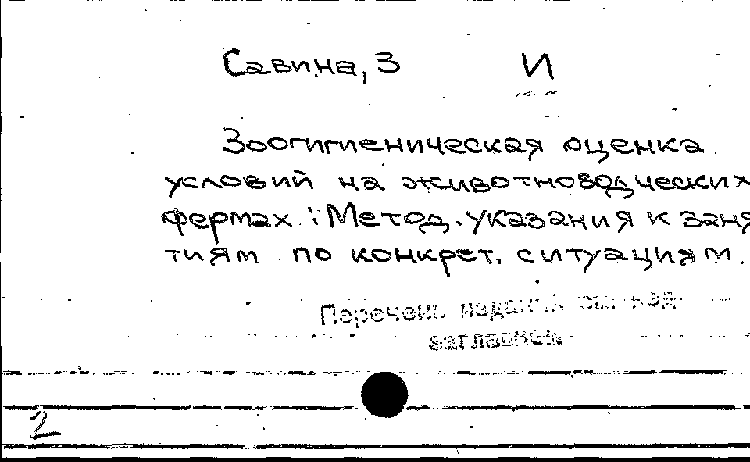 Савина, З И
Зоогигиеническая оценка
условий на животноводческих
фермах : Метод. указания к заня
тиям по конкрет. ситуациям.
Перечень изданий см. под
заглавием
2